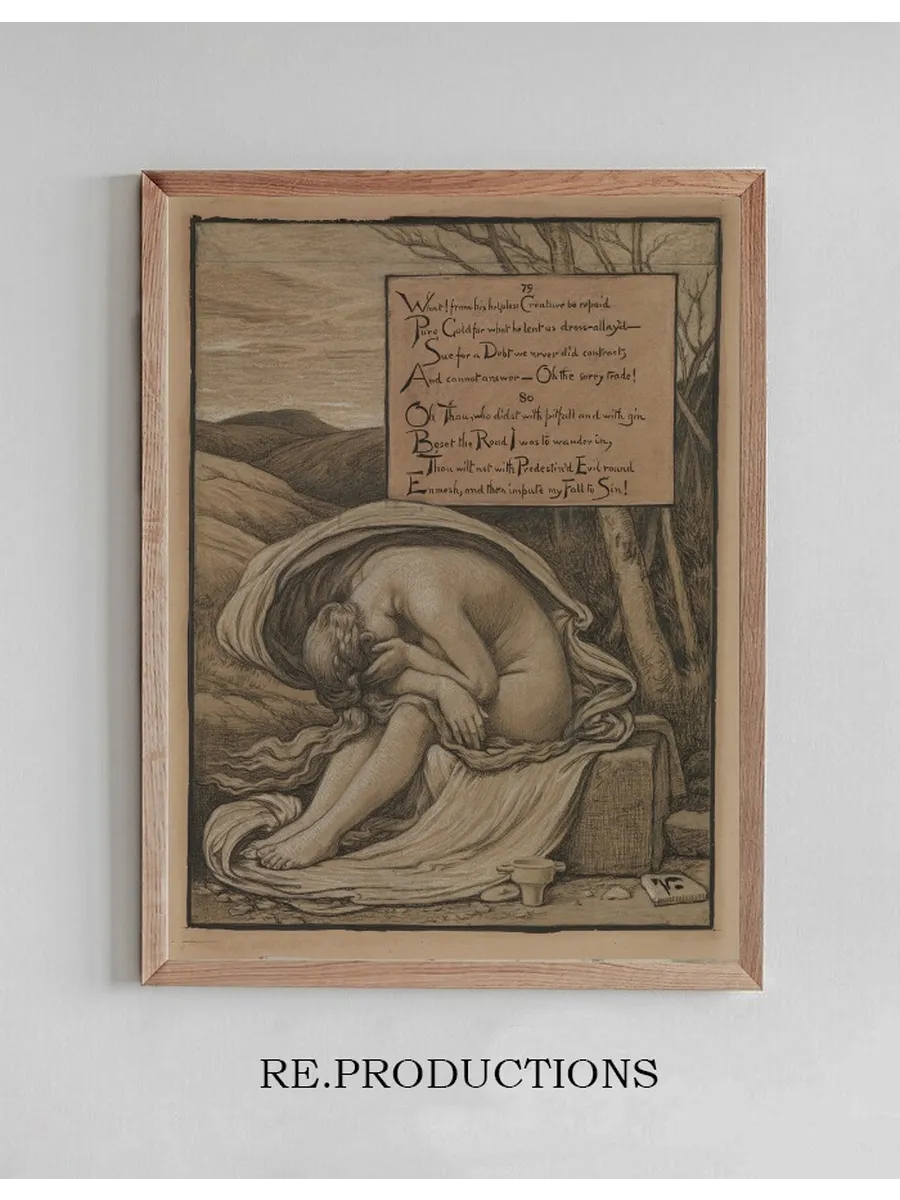 79
What! from his helpless Creature be repaid
Pure Gold for what he lent us dross-allay'd—
Sue for a Debt we never did contract,
And cannot answer— Oh the sorry trade!
80
Oh Thou, who didst with pitfall and with gin
Beset the Road I was to wander in,
Thou wilt not with Predestin'd Evil round
Enmesh, and then impute my Fall to Sin!
V
RE.PRODUCTIONS